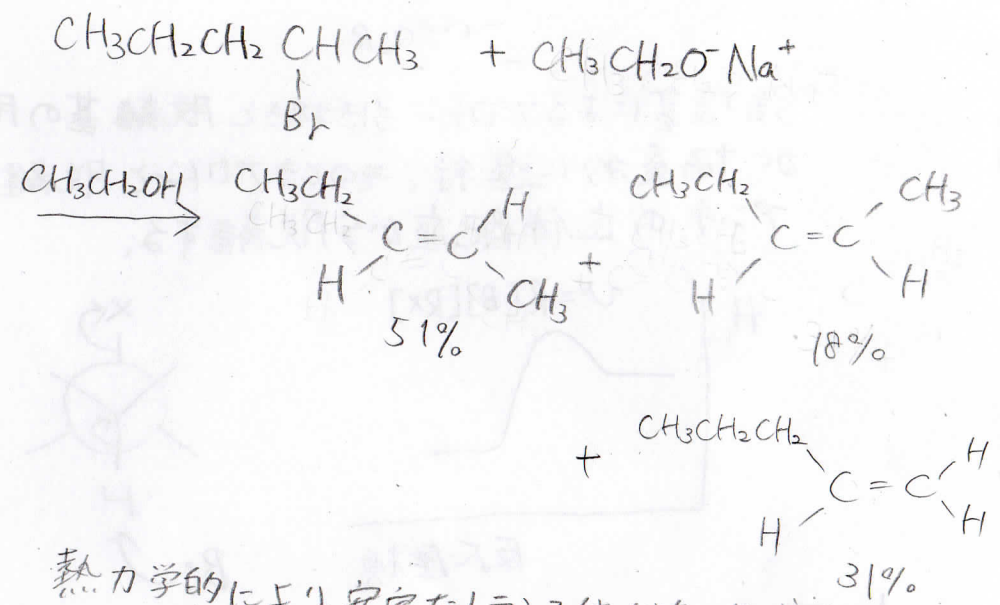 CH3CH2CH2 CHCH3 + CH3CH2O⁻Na⁺
Br
CH3CH2OH
CH3CH2 H
C=C
H CH3
51%
+
CH3CH2 CH3
C=C
H H
18%
+
CH3CH2CH2 H
C=C
H H
31%
熱力学的により安定な